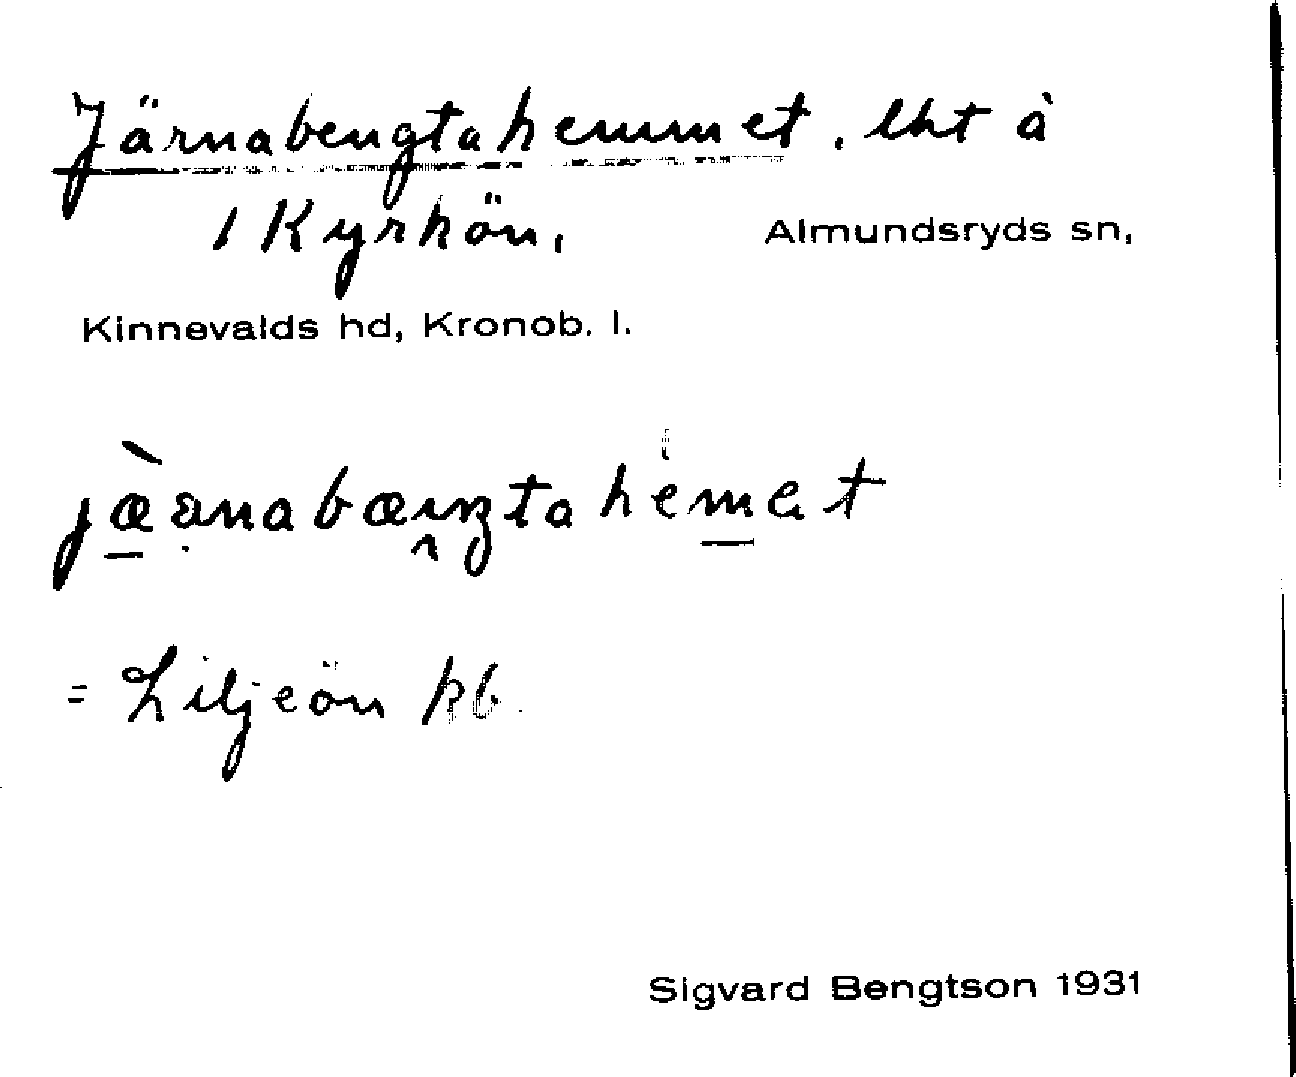 Järnabengtahemmet, lht å
1 Kyrkön, Almundsryds sn,
Kinnevalds hd, Kronob. l.
= Liljeön kb.
Sigvard Bengtson 1931